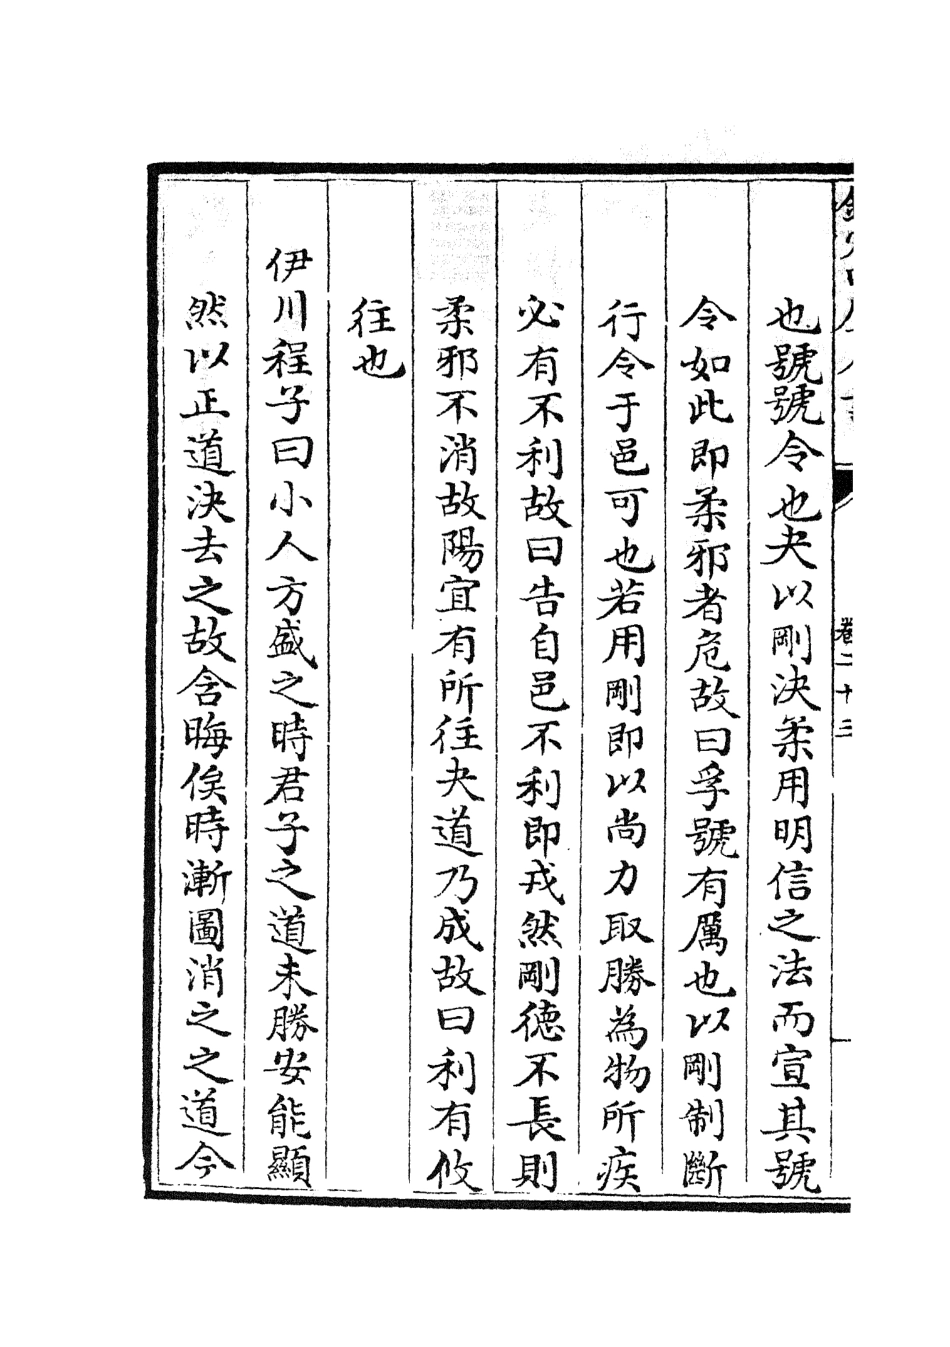 也號號令也夬以剛決柔用明信之法而宣其號
令如此即柔邪者危故曰孚號有厲也以剛制斷
行令于邑可也若用剛即以尚力取勝為物所疾
必有不利故曰告自邑不利即戎然剛德不長則
柔邪不消故陽宜有所往夬道乃成故曰利有攸
往也
伊川程子曰小人方盛之時君子之道未勝安能顯
然以正道決去之故含晦俟時漸圖消之之道今
卷二十三